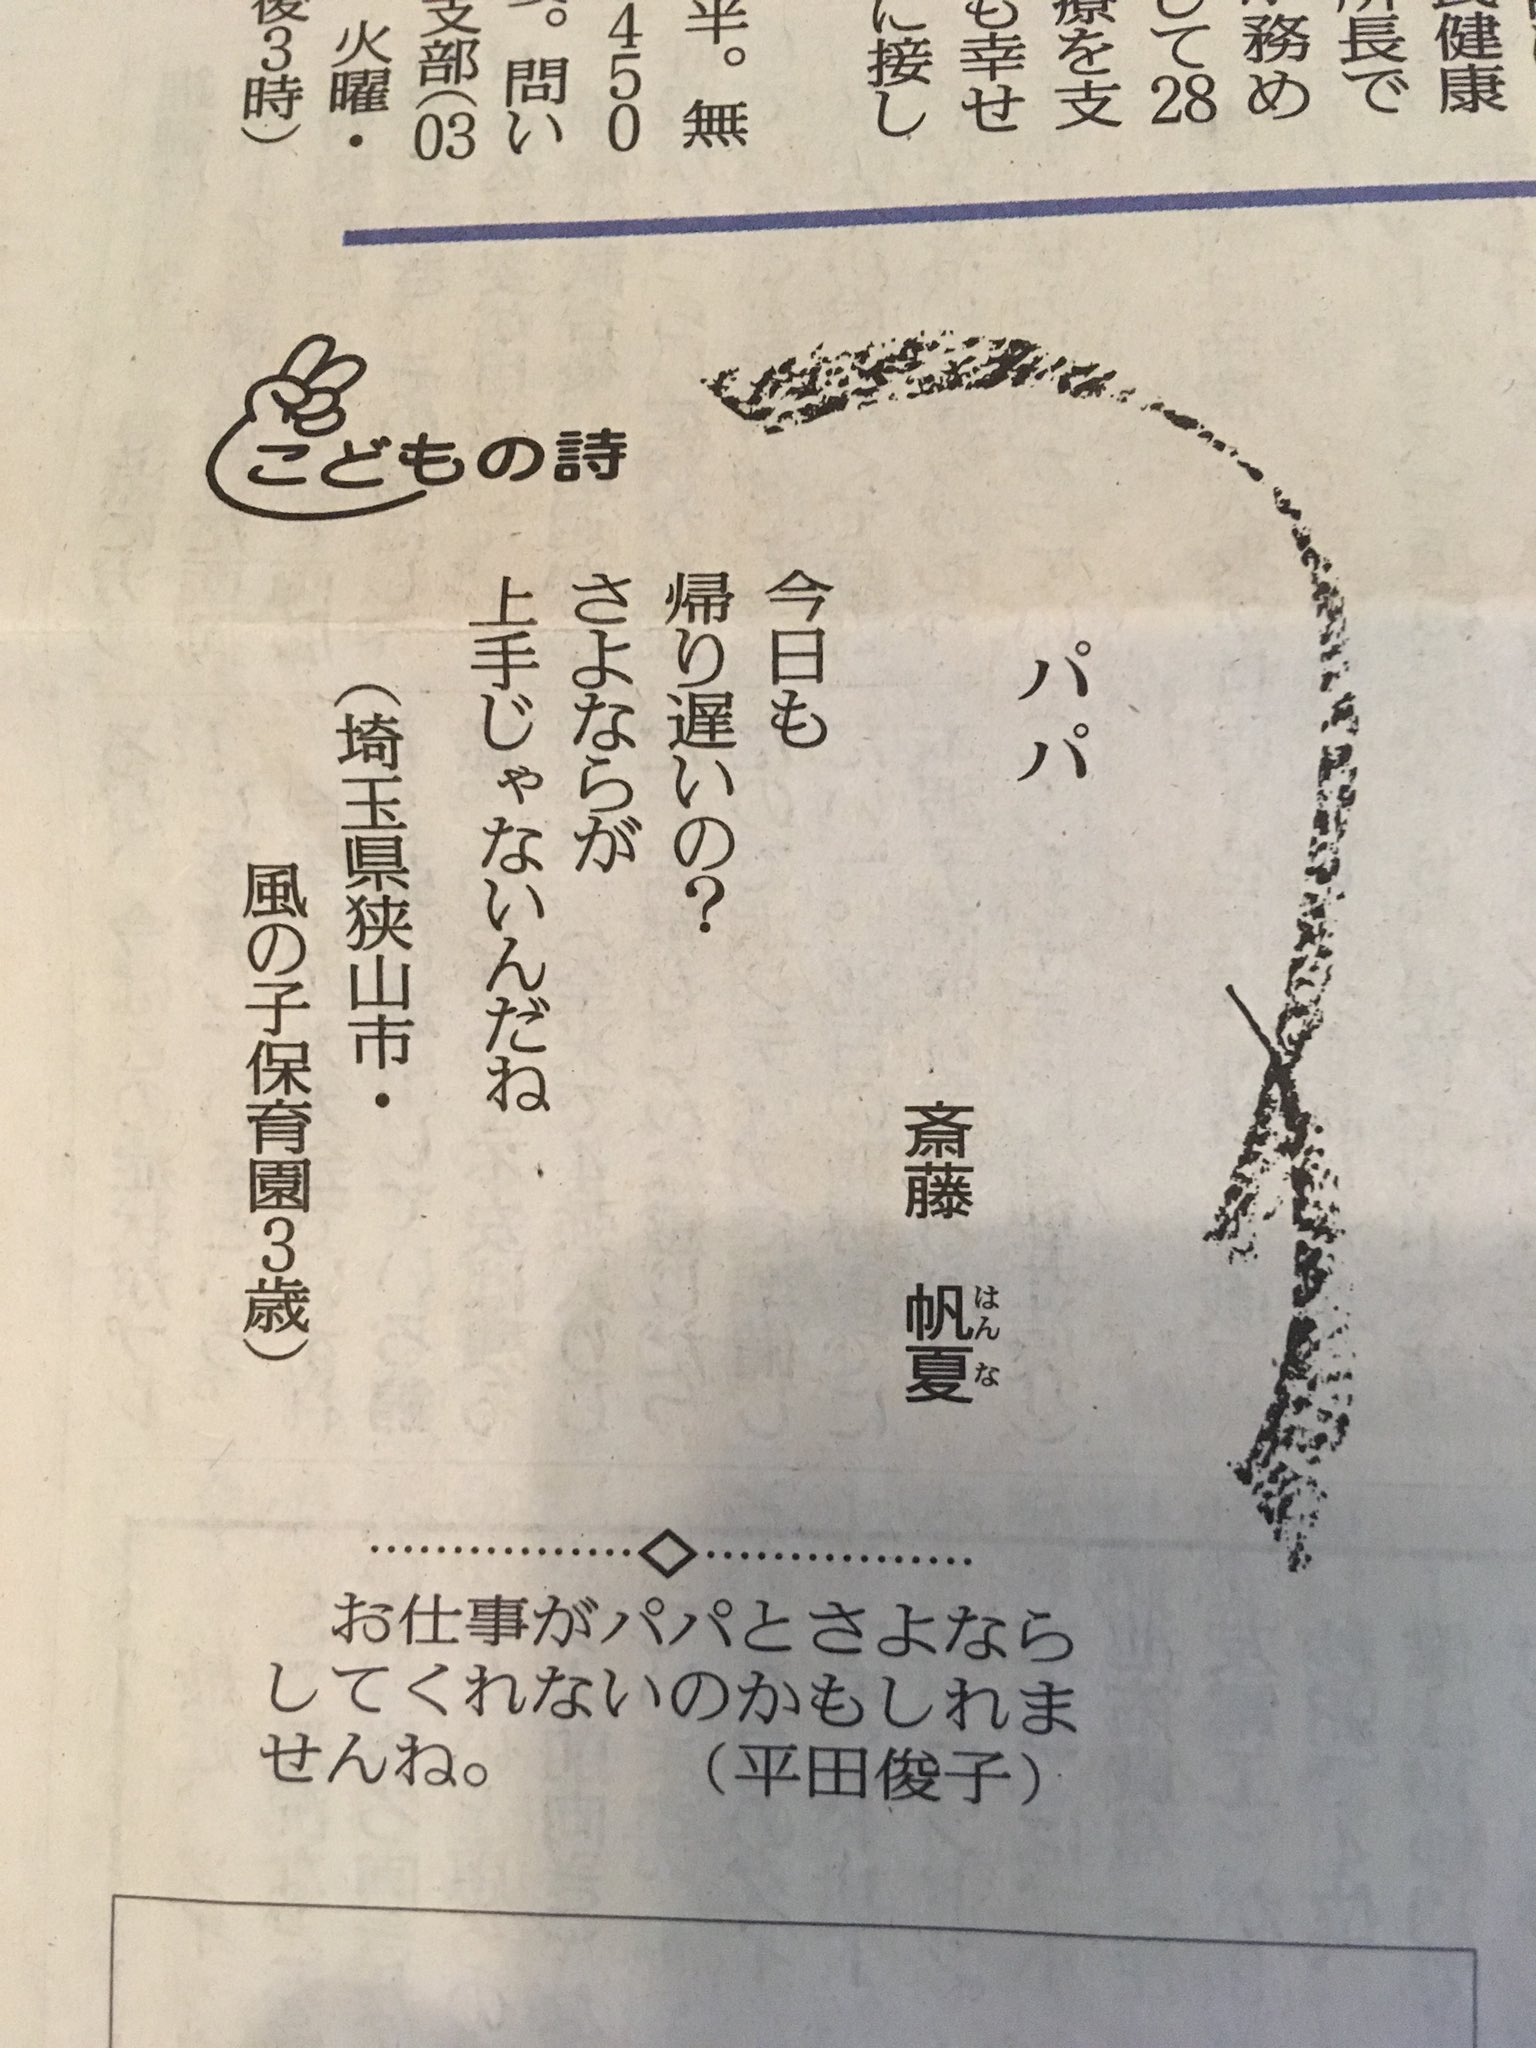 民健康
所長で
務め
して28
療を支
も幸せ
に接し
半。無
450
。問い
支部(03
火曜・
後3時)
こどもの詩
パパ
斎藤 帆夏
はんな
今日も
帰り遅いの?
さよならが
上手じゃないんだね
(埼玉県狭山市・
風の子保育園3歳)
お仕事がパパとさよなら
してくれないのかもしれま
せんね。 (平田俊子)